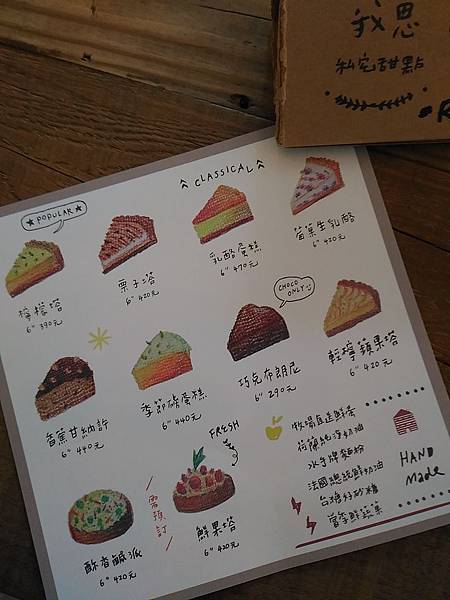 我思
私宅甜點
CLASSICAL
POPULAR
檸檬塔
6" 390元
栗子塔
6" 420元
乳酪蛋糕
6" 470元
莓果生乳酪
6" 420元
香蕉甘納許
6" 440元
季節磅蛋糕
6" 440元
CHOCO ONLY
巧克布朗尼
6" 290元
輕檸蘋果塔
6" 420元
酥香鹹派
6" 420元
需預訂
FRESH
鮮果塔
6" 420元
牧場直送鮮蛋
荷蘭純淨奶油
水手牌麵粉
法國總統鮮奶油
台糖特砂糖
當季鮮蔬果
HAND
made